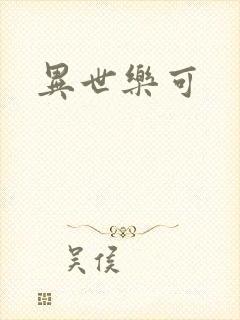 異世樂可
吴侯